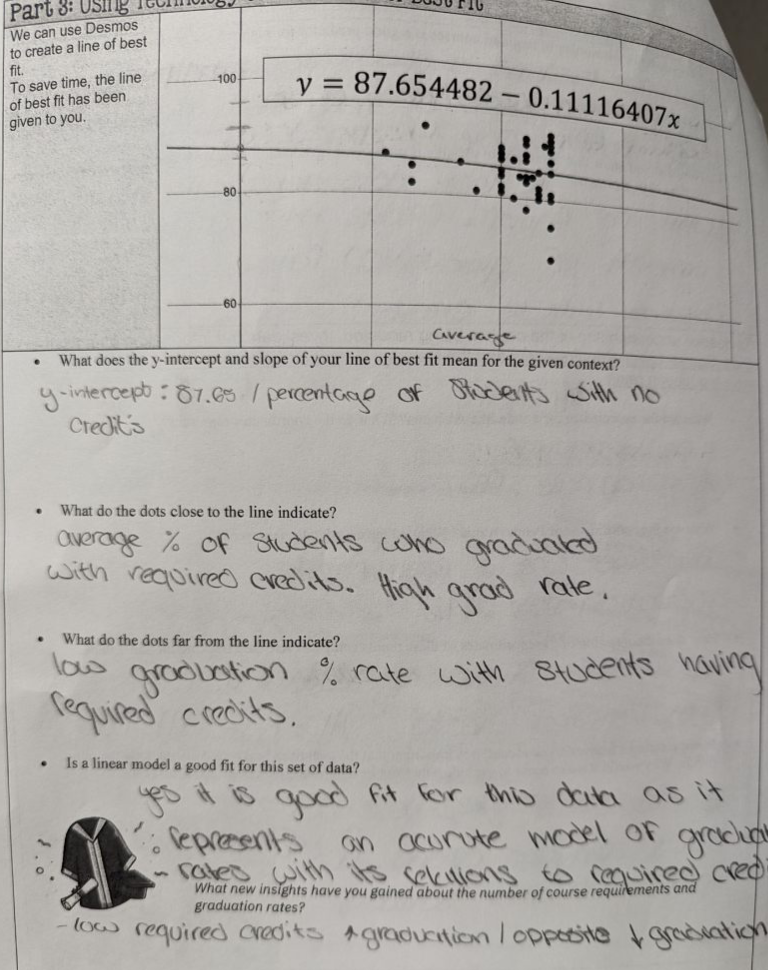 Part 3: Using
We can use Desmos
to create a line of best
fit.
To save time, the line
of best fit has been
given to you.
100
y = 87.654482 − 0.11116407x
80
60
average
• What does the y-intercept and slope of your line of best fit mean for the given context?
y-intercept: 87.65 / percentage of students with no
credit's
• What do the dots close to the line indicate?
average % of students who graduated
with required credits. High grad rate.
• What do the dots far from the line indicate?
low graduation % rate with students having
required credits.
• Is a linear model a good fit for this set of data?
yes it is good fit for this data as it
represents an acurute model of gradua
rates with its relations to required cred
What new insights have you gained about the number of course requirements and
graduation rates?
- low required credits ↑ graduation / opposite ↓ graduation